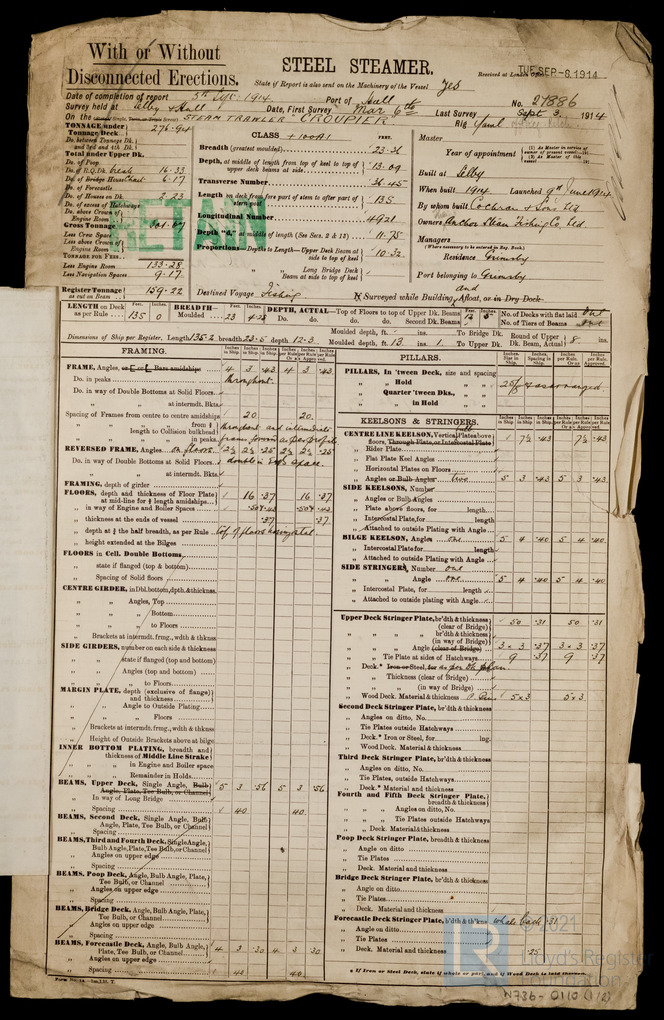 With or Without
Disconnected Erections.
STEEL STEAMER.
State if Report is also sent on the Machinery of the Vessel Yes
Received at London Office TUE. SEP -8. 1914
Date of completion of report 5th Sept. 1914 Port of Hull No. 27886
Survey held at Selby & Hull Date, First Survey Mar 6th Last Survey Sept 3. 1914
On the STEAM TRAWLER "CROUPIER" Rig
TONNAGE under Tonnage Deck 276.94
Do. between Tonnage Dk. and 3rd and 4th Dk.
Total under Upper Dk.
Do. of Poop
Do. of R.Q.Dk. break 16.33
Do. of Bridge House Chart 6.17
Do. of Forecastle
Do. of Houses on Dk. 2.23
Do. of excess of Hatchways
Do. above Crown of Engine Room
Gross Tonnage
Less Crew Space
Less above Crown of Engine Room
TONNAGE FOR FEES
Less Engine Room 133.28
Less Navigation Spaces 9.17
Register Tonnage as cut on Beam 159.22
CLASS +100A1
FEET.
Breadth (greatest moulded)
Depth, at middle of length from top of keel to top of upper deck beams at side 13.09
Transverse Number 36.45
Length on deck from fore part of stem to after part of stern post 135
Longitudinal Number 4921
Depth "d," at middle of length (See Secs. 2 & 13) 11.75
Proportions—Depths to Length—Upper Deck Beam at side to top of keel 10.32
" " Long Bridge Deck Beam at side to top of keel
Destined Voyage Fishing
Master
Year of appointment
(1) As Master in service of owner of present vessel:—19
(2) As Master of this vessel:—19
Built at Selby
When built 1914 Launched 9th June 1914
By whom built Cochran & Sons Ltd
Owners Anchor Steam Fishing Co Ltd
Managers
(Where necessary to be entered in Reg. Book.)
Residence Grimsby
Port belonging to Grimsby
Surveyed while Building, Afloat, and or in Dry Dock
RETAIN
LENGTH on Deck as per Rule 135 0
BREADTH— Moulded 23
DEPTH, ACTUAL—Top of Floors to top of Upper Dk. Beams
Do. Do. Second Dk. Beams
No. of Decks with flat laid one
No. of Tiers of Beams one
Dimensions of Ship per Register, Length 135.2 breadth 23.5 depth 12.3
Moulded depth, ft. ins. To Bridge Dk.
Moulded depth, ft. 13 ins. 1 To Upper Dk.
Round of Upper Dk. Beam, Actual 8 ins.
FRAMING.
FRAME, Angles, or E or L Bars amidships 4 3 .43 4 3 .43
Do. in peaks throughout
Do. in way of Double Bottoms at Solid Floors
" " at intermdt. Bkts.
Spacing of Frames from centre to centre amidships 20 20
" " from 3/5 length to Collision bulkhead
" " in peaks
REVERSED FRAME, Angles on floors 2½ 2½ .25 2½ 2½ .25
Do. in way of Double Bottoms at Solid Floors double in E&B space
" " at intermdt. Bkts.
FRAMING, depth of girder
FLOORS, depth and thickness of Floor Plate at mid-line for ½ length amidships 16 .37 16 .37
" in way of Engine and Boiler Spaces
" thickness at the ends of vessel .37 .37
" depth at ¾ the half breadth, as per Rule top of floors horizontal
" height extended at the Bilges
FLOORS in Cell. Double Bottoms,
" state if flanged (top & bottom)
" Spacing of Solid floors
CENTRE GIRDER, in Dbl. bottom, depth, & thickness.
" " Angles, Top
" " Bottom
" " to Floors
" Brackets at intermdt. frmg., wdth & thknss
SIDE GIRDERS, number on each side & thickness
" state if flanged (top and bottom)
" Angles (top and bottom)
" " to Floors
MARGIN PLATE, depth (exclusive of flange) and thickness
" Angle to Outside Plating
" " Floors
" Brackets at intermdt. frmg., wdth & thknss
" Height of Outside Brackets above at bilge
INNER BOTTOM PLATING, breadth and thickness of Middle Line Strake
" " in Engine and Boiler space
" " Remainder in Holds
BEAMS, Upper Deck, Single Angle, Bulb Angle, Plate, Tee Bulb, or Channel 5 3 .56 5 3 .56
" In way of Long Bridge
" Spacing 40 40
BEAMS, Second Deck, Single Angle, Bulb Angle, Plate, Tee Bulb, or Channel
" Spacing
BEAMS, Third and Fourth Deck, Single Angle, Bulb Angle, Plate, Tee Bulb, or Channel
" Angles on upper edge
" Spacing
BEAMS, Poop Deck, Angle, Bulb Angle, Plate, Tee Bulb, or Channel
" Angles on upper edge
" Spacing
BEAMS, Bridge Deck, Angle, Bulb Angle, Plate, Tee Bulb, or Channel
" Angles on upper edge
" Spacing
BEAMS, Forecastle Deck, Angle, Bulb Angle, Plate, Tee Bulb, or Channel 4 3 .30 4 3 .30
" Angles on upper edge
" Spacing 40 40
PILLARS.
PILLARS, In 'tween Deck, size and spacing
" Hold
" Quarter 'tween Dks., "
" in Hold
KEELSONS & STRINGERS.
CENTRE LINE KEELSON, Vertical Plate above floors, Through Plate, or Intercostal Plate 1 7½ .43 7½ .43
" Rider Plate
" Flat Plate Keel Angles
" Horizontal Plates on Floors
" Angles or Bulb Angles two 5 3 .43 5 3 .43
SIDE KEELSONS, Number
" Angles or Bulb Angles
" Plate above floors, for length
" Intercostal Plate, for length
" Attached to outside Plating with Angle
BILGE KEELSON, Angles one 5 4 .40 5 4 .40
" Intercostal Plate for length
" Attached to outside Plating with Angle
SIDE STRINGERS, Number one
" Angle one 5 4 .40 5 4 .40
" Intercostal Plate, for length
" Attached to outside plating with Angle
Upper Deck Stringer Plate, br'dth & thickness (clear of Bridge) 50 .31 50 .31
" " br'dth & thickness (in way of Bridge)
" " Angle (clear of Bridge) 3 × 3 .37 3 × 3 .37
" Tie Plate at sides of Hatchways 9 .37 9 .37
" Deck.* Iron or Steel, for
" Thickness (clear of Bridge)
" " (in way of Bridge)
" Wood Deck. Material & thickness P. Pine 5×3 5×3
Second Deck Stringer Plate, br'dth & thickness
" Angles on ditto, No.
" Tie Plates outside Hatchways
" Deck.* Iron or Steel, for lng.
" Wood Deck. Material & thickness
Third Deck Stringer Plate, br'dth & thickness
" Angles on ditto, No.
" Tie Plates, outside Hatchways
" Deck.* Material and thickness
Fourth and Fifth Deck Stringer Plate, breadth & thickness
" " Angles on ditto, No.
" " Tie Plates outside Hatchways
" Deck. Material & thickness
Poop Deck Stringer Plate, breadth & thickness
" Angle on ditto
" Tie Plates
" Deck. Material and thickness
Bridge Deck Stringer Plate, br'dth & thickness
" Angle on ditto
" Tie Plates
" Deck. Material and thickness
Forecastle Deck Stringer Plate, b'dth & th'kns whale back .31
" Angle on ditto
" Tie Plates
" Deck. Material and thickness .25
* If Iron or Steel Deck, state if whole or part, and if Wood Deck is laid thereon.
© 2021
Lloyd's Register
Foundation
W736-0110 (1/2)